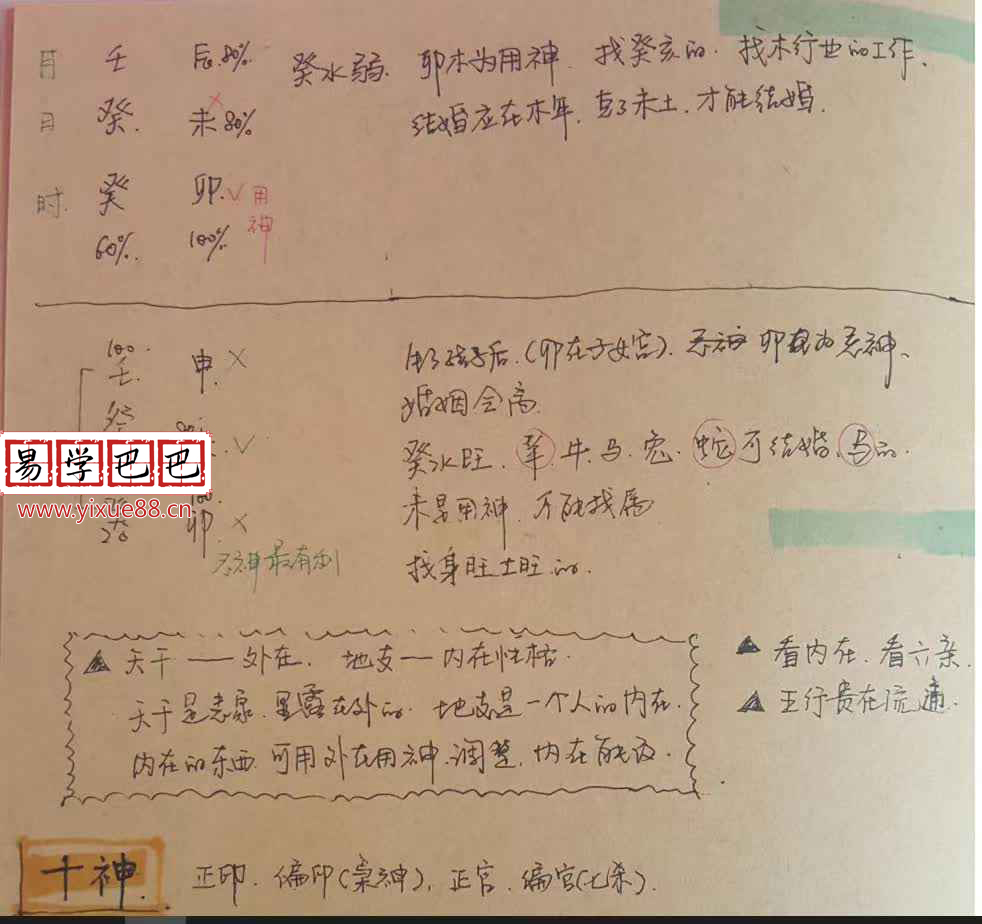 月 壬 辰80% 癸水弱. 卯木为用神. 找癸亥的. 找木行业的工作.
日 癸. 未80% 结婚应在木年, 克了未土, 才能结婚.
时. 癸 卯.√用神
60%. 100%
100. 壬. 申× 生了孩子后.(卯在子女宫). 忌神 卯为忌神、
婚姻会离.
癸水旺. 羊. 牛. 马. 兔. 蛇 可结婚、马的.
未是用神, 不能找属
癸 20 100. 卯× 找身旺土旺的.
忌神最有利
▲ 天干——外在. 地支—内在性格.
天干是表象. 显露在外的. 地支是一个人的内在.
内在的东西. 可用外在用神.调整, 内在能改.
▲ 看内在. 看六亲.
▲ 五行贵在流通.
易学巴巴
www.yixue88.cn
十神. 正印. 偏印(枭神). 正官. 偏官(七杀).